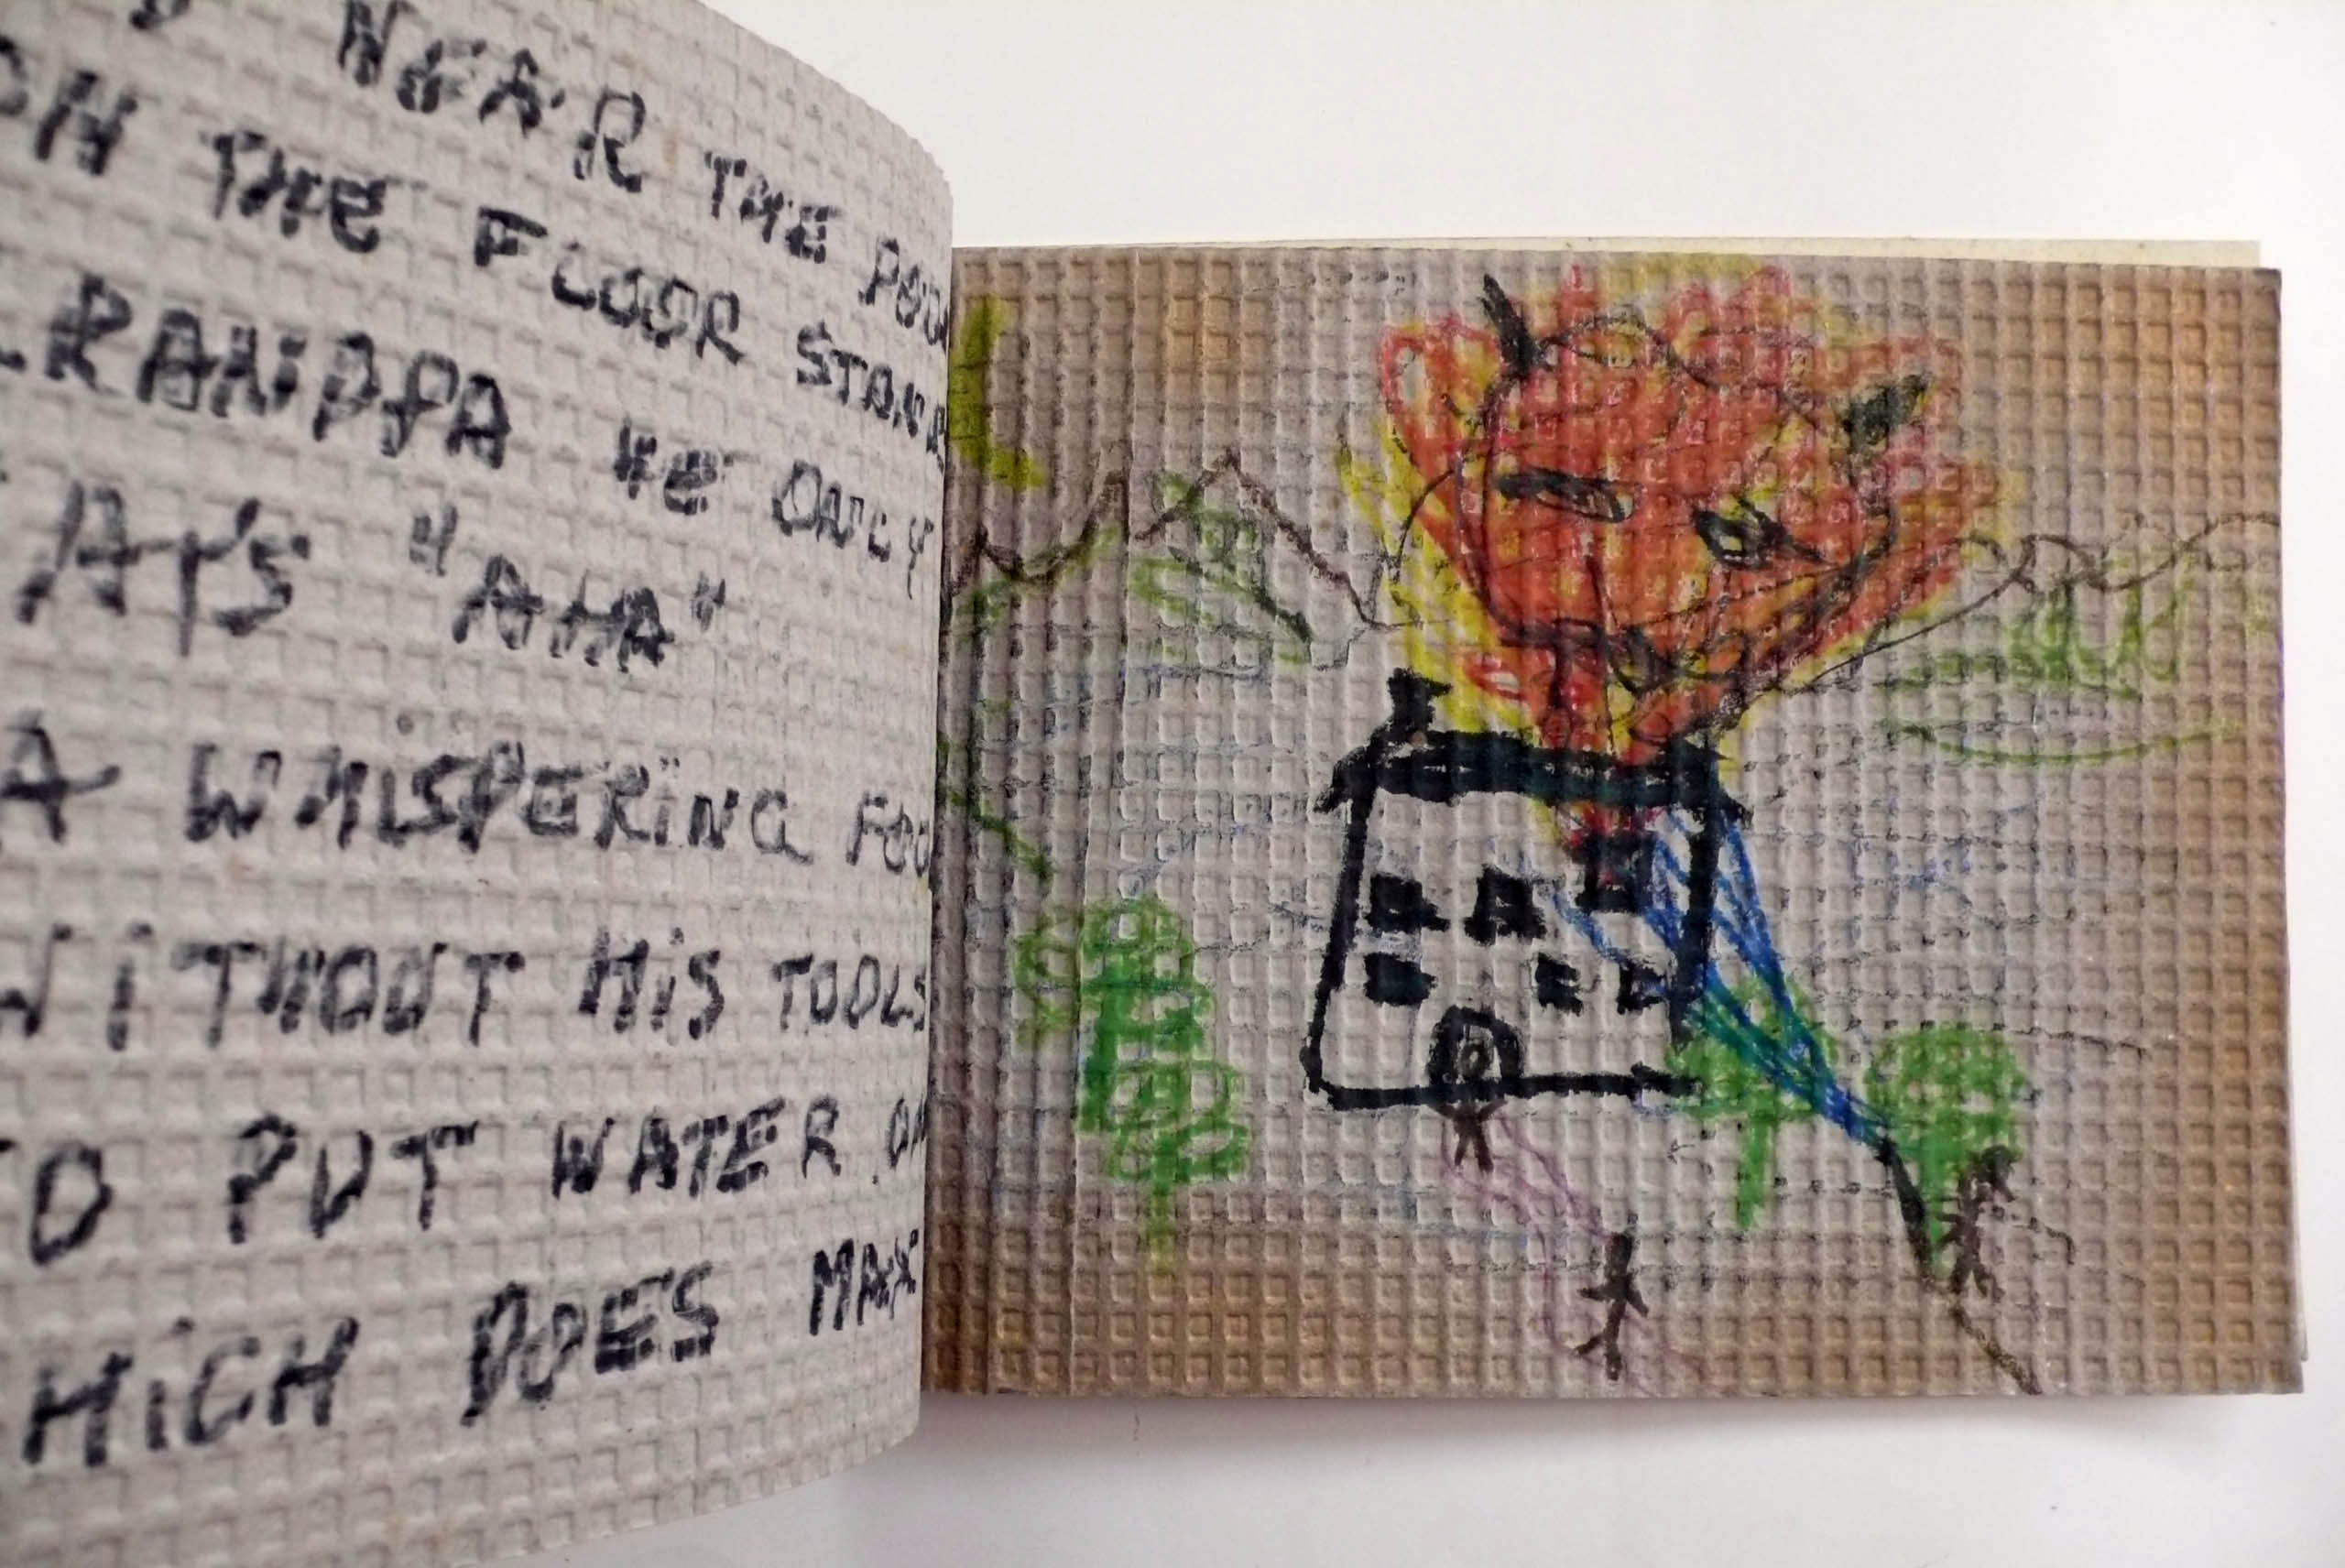 NEAR THE
ON THE FLOOR
GRANDPA HE ONLY
SAYS "AHA"
A WHISPERING
WITHOUT HIS TOOLS
TO PUT WATER
HIGH DOES